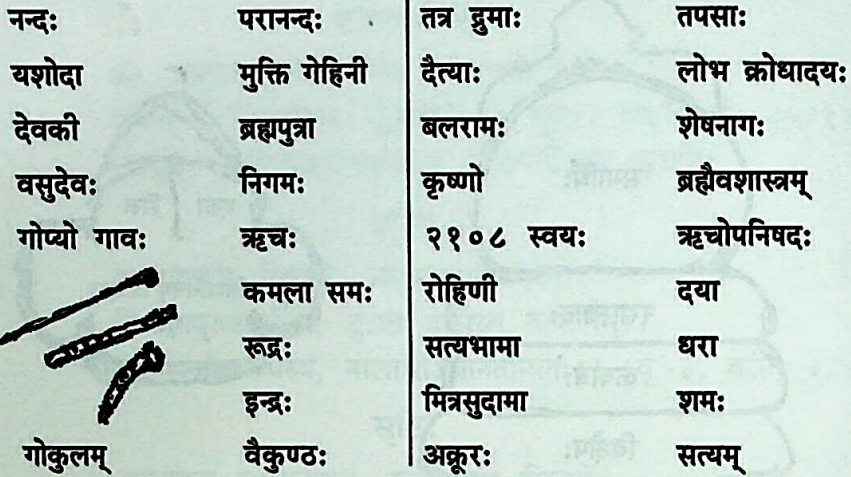 नन्दः परानन्दः
यशोदा मुक्ति गेहिनी
देवकी ब्रह्मपुत्रा
वसुदेवः निगमः
गोप्यो गावः ऋचः
कमला समः
रूद्रः
इन्द्रः
गोकुलम् वैकुण्ठः
तत्र द्रुमाः तपसाः
दैत्याः लोभ क्रोधादयः
बलरामः शेषनागः
कृष्णो ब्रह्मैवशास्त्रम्
२१०८ स्वयः ऋचोपनिषदः
रोहिणी दया
सत्यभामा धरा
मित्रसुदामा शमः
अक्रूरः सत्यम्